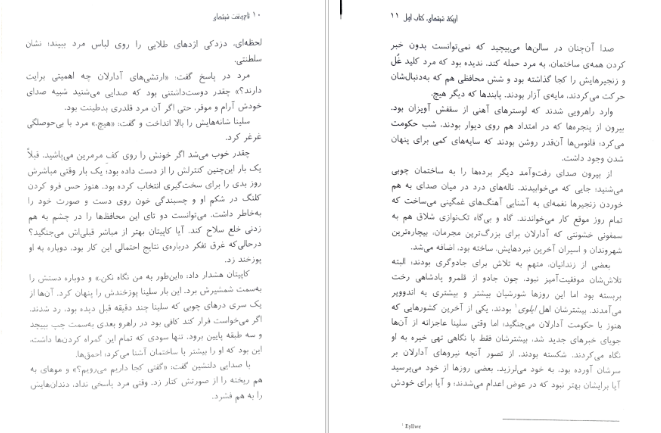 ۱۰ تاج‌وتخت شیشه‌ای
لحظه‌ای، دزدکی اژدهای طلایی را روی لباس مرد ببیند؛ نشان
سلطنتی.
مرد در پاسخ گفت: «ارتشی‌های آدارلان چه اهمیتی برایت
دارند؟» چقدر دوست‌داشتنی بود که صدایی می‌شنید شبیه صدای
خودش آرام و موقر، حتی اگر آن مرد قلدری بدطینت بود.
سلینا شانه‌هایش را بالا انداخت و گفت: «هیچ.» مرد با بی‌حوصلگی
غرغر کرد.
چقدر خوب می‌شد اگر خونش را روی کف مرمرین می‌پاشید. قبلاً
یک بار این‌چنین کنترلش را از دست داده بود؛ یک بار وقتی مباشرش
روز بدی را برای سخت‌گیری انتخاب کرده بود. هنوز حس فرو کردن
کلنگ در شکم او و چسبندگی خون روی دست و صورت خود را
به‌خاطر داشت. می‌توانست دو تای این محافظ‌ها را در چشم به هم
زدنی خلع سلاح کند. آیا کاپیتان بهتر از مباشر قبلی‌اش می‌جنگید؟
درحالی‌که غرق تفکر درباره‌ی نتایج احتمالی این کار بود، دوباره به او
پوزخند زد.
کاپیتان هشدار داد، «این‌طور به من نگاه نکن.» و دوباره دستش را
به‌سمت شمشیرش برد. این بار سلینا پوزخندش را پنهان کرد. آن‌ها از
یک سری درهای چوبی که سلینا چند دقیقه قبل دیده بود، رد شدند.
اگر می‌خواست فرار کند کافی بود در راهرو بعدی به‌سمت چپ بپیچد
و سه طبقه پایین برود. تنها سودی که تمام این گمراه کردن‌ها داشت،
این بود که او را بیشتر با ساختمان آشنا می‌کرد؛ احمق‌ها.
با صدایی دلنشین گفت: «گفتی کجا داریم می‌رویم؟» و موهای به
هم ریخته را از صورتش کنار زد. وقتی مرد پاسخی نداد، دندان‌هایش
را به هم فشرد.
اورنگ شیشه‌ای، کتاب اول ۱۱
صدا آن‌چنان در سالن‌ها می‌پیچید که نمی‌توانست بدون خبر
کردن همه‌ی ساختمان، به مرد حمله کند. ندیده بود که مرد کلید غُل
و زنجیرهایش را کجا گذاشته بود و شش محافظی هم که به‌دنبال‌شان
حرکت می‌کردند، مایه‌ی آزار بودند. پابندها که دیگر هیچ.
وارد راهرویی شدند که لوسترهای آهنی از سقفش آویزان بود.
بیرون از پنجره‌ها که در امتداد هم روی دیوار بودند، شب حکومت
می‌کرد؛ فانوس‌ها آن‌قدر روشن بودند که سایه‌های کمی برای پنهان
شدن وجود داشت.
از بیرون صدای رفت‌وآمد دیگر برده‌ها را به ساختمان چوبی
می‌شنید؛ جایی که می‌خوابیدند. ناله‌های درد در میان صدای به هم
خوردن زنجیرها نغمه‌ای به آشنایی آهنگ‌های غمگینی می‌ساخت که
تمام روز موقع کار می‌خواندند. گاه و بی‌گاه تک‌نوازی شلاق هم به
سمفونی خشونتی که آدارلان برای بزرگ‌ترین مجرمان، بیچاره‌ترین
شهروندان و اسیران آخرین نبردهایش، ساخته بود، اضافه می‌شد.
بعضی از زندانیان، متهم به تلاش برای جادوگری بودند؛ البته
تلاش‌شان موفقیت‌آمیز نبود. چون جادو از قلمرو پادشاهی رخت
بربسته بود اما این روزها شورشیان بیشتر و بیشتری به اندوویر
می‌آمدند. بیشترشان اهل ایلوی¹ بودند، یکی از آخرین کشورهایی که
هنوز با حکومت آدارلان می‌جنگید؛ اما وقتی سلینا عاجزانه از آن‌ها
جویای خبرهای جدید شد، بیشترشان فقط با نگاهی تهی خیره به او
نگاه می‌کردند. شکسته بودند. از تصور آنچه نیروهای آدارلان بر
سرشان آورده بود، به خود می‌لرزید. بعضی روزها از خود می‌پرسید
آیا برایشان بهتر نبود که در عوض اعدام می‌شدند؛ و آیا برای خودش
¹ Eyllwe